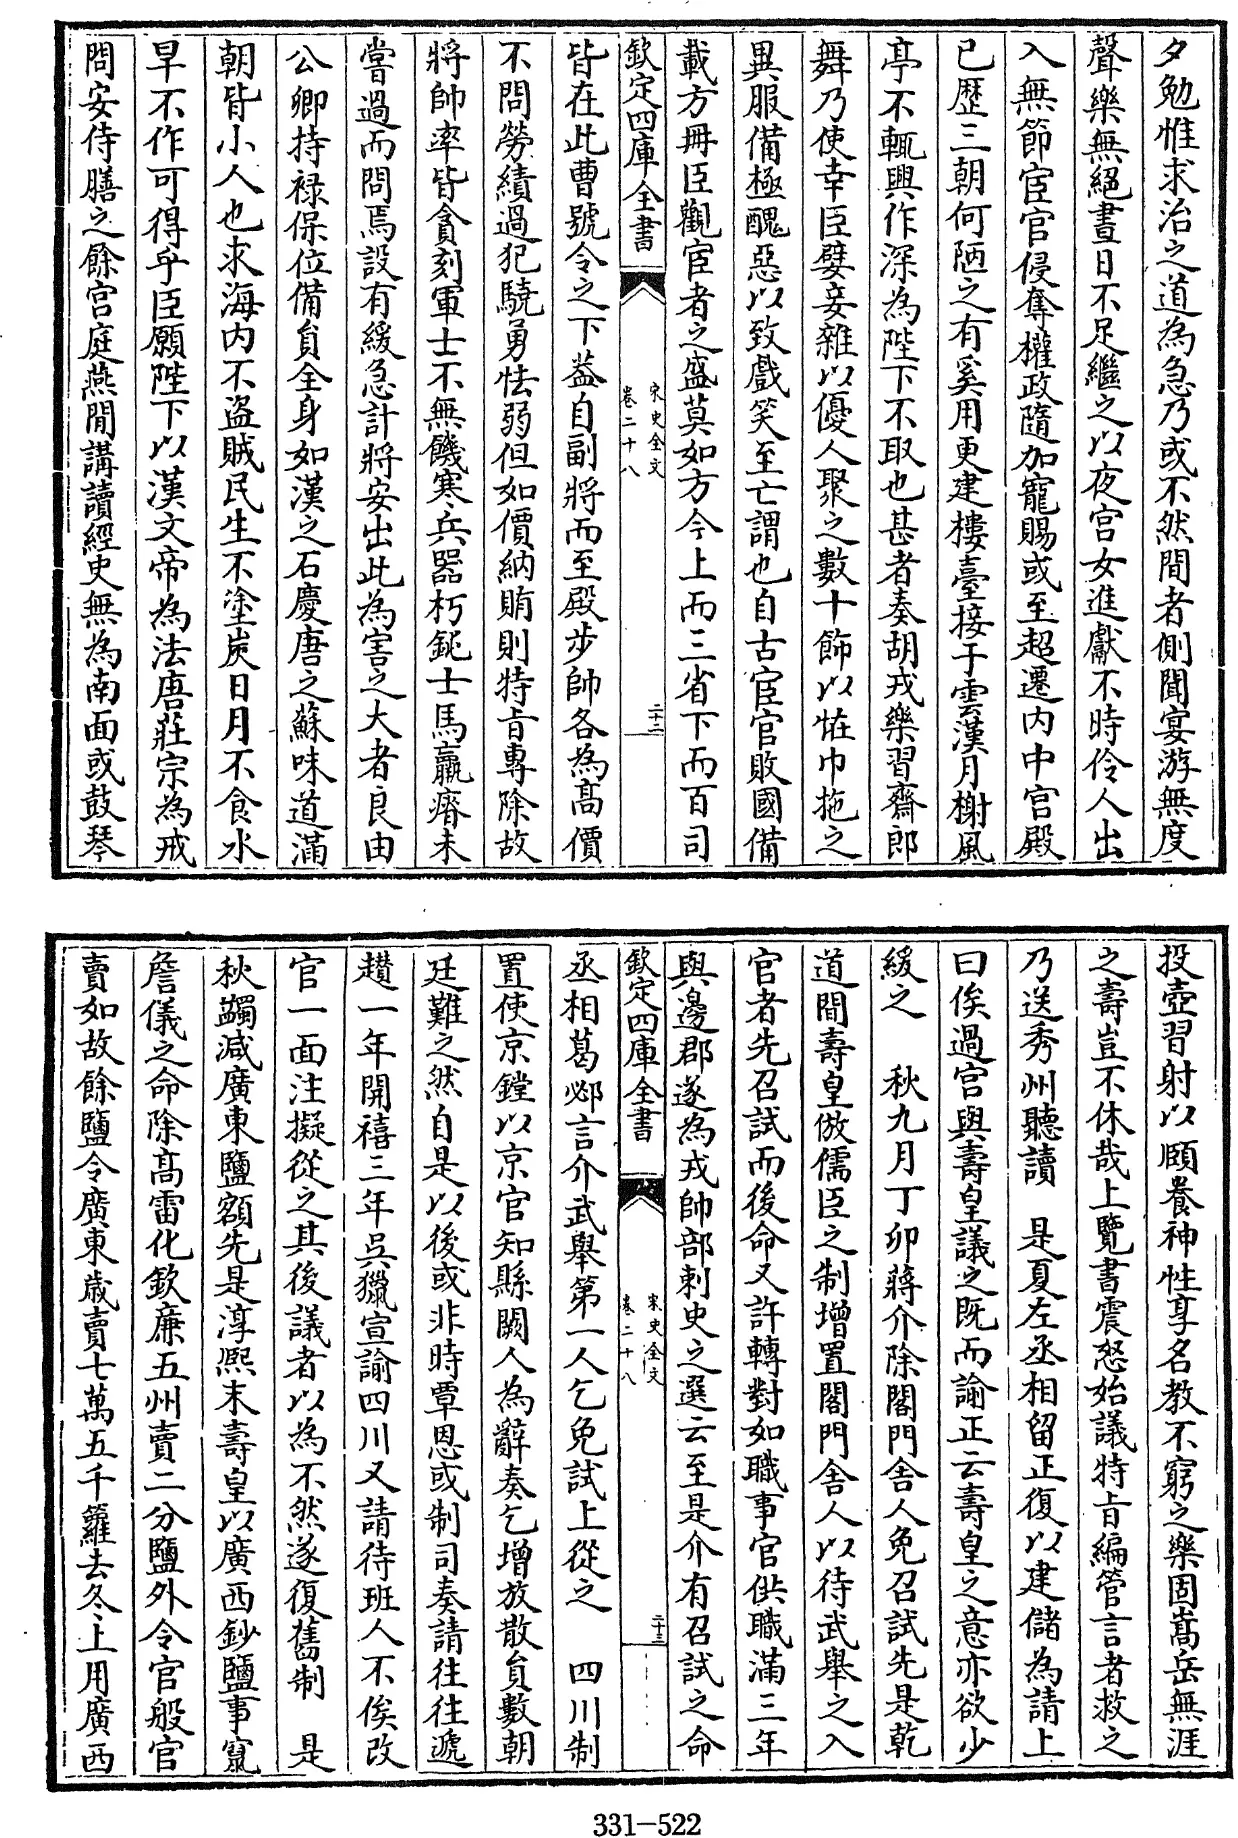 夕勉惟求治之道為急乃或不然間者側聞宴游無度
聲樂無絕晝日不足繼之以夜宫女進獻不時伶人出
入無節宦官侵奪權政隨加寵賜或至超遷内中宫殿
已歴三朝何陋之有奚用更建樓臺接于雲漢月榭風
亭不輒興作深為陛下不取也甚者奏胡戎樂習齋郎
舞乃使幸臣嬖妾雜以優人聚之數十飾以恠巾拖之
異服備極醜惡以致戲笑至亡謂也自古宦官敗國備
載方冊臣觀宦者之盛莫如方今上而三省下而百司
欽定四庫全書
宋史全文
卷二十八
二十二
皆在此曹號令之下葢自副將而至殿步帥各為髙價
不問勞績過犯驍勇怯弱但如價納賄則特㫖專除故
將帥率皆貪刻軍士不無饑寒兵器朽鈍士馬羸瘠未
嘗過而問焉設有緩急計將安出此為害之大者良由
公卿持禄保位備員全身如漢之石慶唐之蘇味道滿
朝皆小人也求海内不盗賊民生不塗炭日月不食水
旱不作可得乎臣願陛下以漢文帝為法唐莊宗為戒
問安侍膳之餘宫庭燕閒講讀經史無為南面或鼓琴
投壺習射以頤養神性享名教不窮之樂固嵩岳無涯
之壽豈不休哉上覽書震怒始議特㫖編管言者救之
乃送秀州聽讀　是夏左丞相留正復以建儲為請上
曰俟過宫與壽皇議之既而諭正云壽皇之意亦欲少
緩之　秋九月丁卯蔣介除閤門舍人免召試先是乾
道間壽皇倣儒臣之制增置閤門舍人以待武舉之入
官者先召試而後命又許轉對如職事官供職滿三年
與邊郡遂為戎帥部刺史之選云至是介有召試之命
欽定四庫全書
宋史全文
卷二十八
二十三
丞相葛邲言介武舉第一人乞免試上從之　四川制
置使京鏜以京官知縣闕人為辭奏乞增放散員數朝
廷難之然自是以後或非時覃恩或制司奏請往往遞
趲一年開禧三年吴獵宣諭四川又請待班人不俟改
官一面注擬從之其後議者以為不然遂復舊制　是
秋蠲减廣東鹽額先是淳熙末壽皇以廣西鈔鹽事竄
詹儀之命除髙雷化欽廉五州賣二分鹽外令官般官
賣如故餘鹽令廣東歲賣七萬五千籮去冬上用廣西
331-522